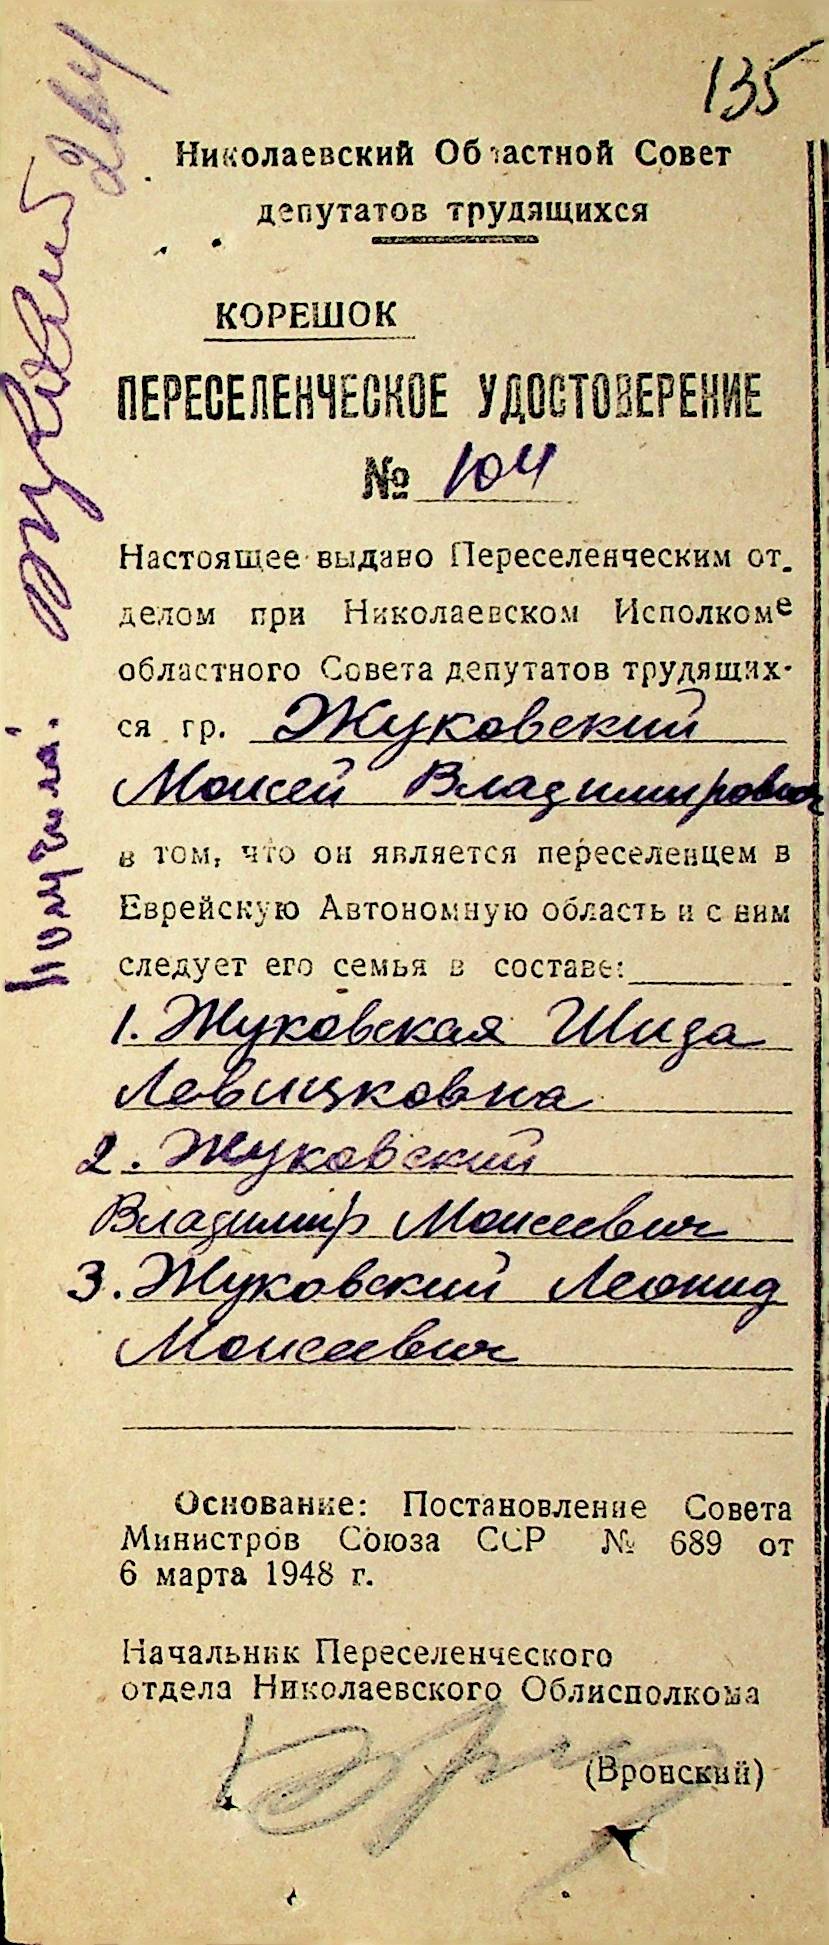 135
264
Николаевский Областной Совет
депутатов трудящихся
КОРЕШОК
ПЕРЕСЕЛЕНЧЕСКОЕ УДОСТОВЕРЕНИЕ
№ 104
Настоящее выдано Переселенческим от-
делом при Николаевском Исполкоме
областного Совета депутатов трудящих-
ся гр. Жуковский
Моисей Владимирович
в том, что он является переселенцем в
Еврейскую Автономную область и с ним
следует его семья в составе:
1. Жуковская Шида
Левицковна
2. Жуковский
Владимир Моисеевич
3. Жуковский Леонид
Моисеевич
Основание: Постановление Совета
Министров Союза ССР № 689 от
6 марта 1948 г.
Начальник Переселенческого
отдела Николаевского Облисполкома
(Вронский)
получил: